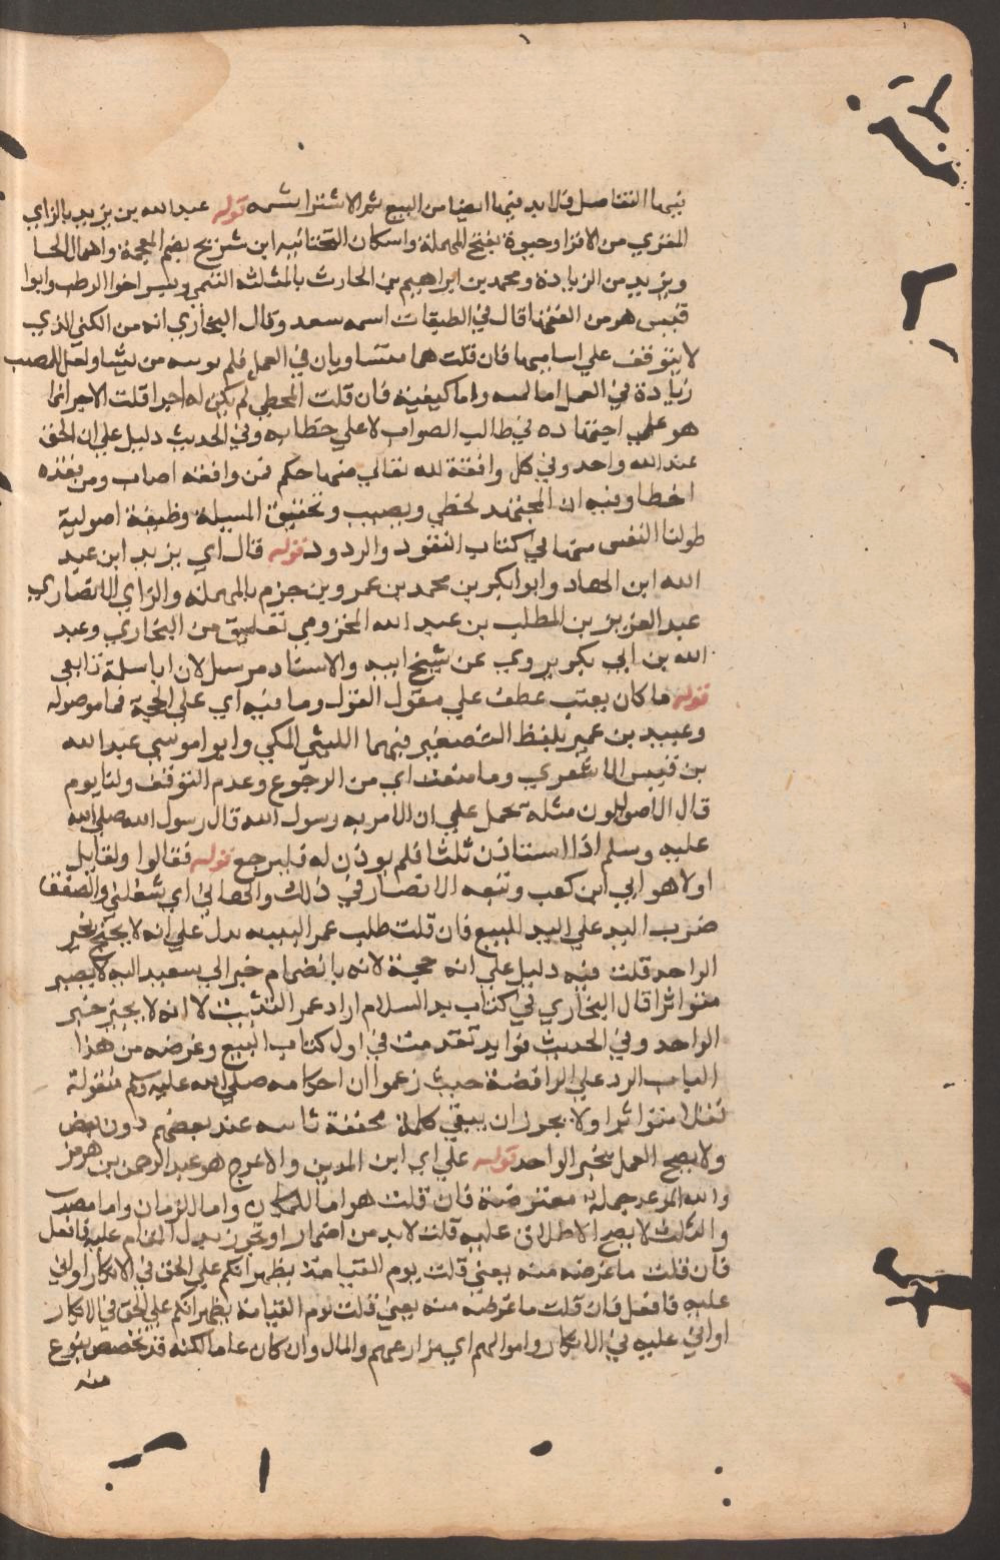 فيهما التفاضل فلا بد فيهما ايضا من البيع ثم الاشترا بثمنه قوله عبد الله بن يزيد بالزاي
المقري من الاقرا وحيوة بفتح المهملة واسكان التحتانية ابن شريح بضم المعجمة واهمال الحا
ويزيد من الزيادة ومحمد بن ابراهيم بن الحارث بالمثلثة التيمي وبسر اخوا الرطب وابوا
قيس هو من الفقها قال في الطبقات اسمه سعد وقال البخاري انه من الكنى الذي
لا يتوقف علي اساميها فان قلت هما متساويان في العمل فلم يوتيه من يشا ولعل للمصيب
زيادة في العمل اما كمية واما كيفية فان قلت المخطي لم يكن له اجرا قلت الاجر انما
هو علي اجتهاده في طالب الصواب لا علي خطايه وفي الحديث دليل علي ان الحق
عند الله واحد وفي كل واقعة لله تعالي فيها حكم فمن وافقه اصاب ومن فقده
اخطا وفيه ان المجتهد يخطي ويصيب وتحقيق المسيلة وظيفة اصولية
طولنا النفس منها في كتاب النقود والردود قوله قال اي يزيد ابن عبد
الله ابن الهاد وابوا بكر بن محمد بن عمرو بن حزم بالمهملة والزاي الانصاري
عبد العزيز بن المطلب بن عبد الله المخزومي تعليق من البخاري وعبد
الله بن ابي بكر يروي عن شيخ ابيه والاسناد مرسل لان ابا سلمة تابعي
قوله ما كان يعيب عطف علي مقول القول وما فيه اي علي الحجة فما موصولة
وعبيد بن عمير بلفظ التصغير فيهما الليثي المكي وابوا موسي عبد الله
بن قيس الاشعري وما منعك اي من الرجوع وعدم التوقف ولنا يوم
قال الاصوليون مثله يحمل علي ان الامر به رسول الله قال رسول الله صلي الله
عليه وسلم اذا استاذن ثلثا فلم يوذن له فليرجع قوله فقالوا ولقايل
اولا هو ابي ابن كعب وتبعه الانصار في ذلك والهاني اي شغلني والصفق
ضرب اليد علي اليد للبيع فان قلت طلب عمر البينة يدل علي انه لا يحتج بخبر
الواحد قلت فيه دليل علي انه حجة لانه بانضمام خبر ابي سعيد اليه لا يصير
متواترا قال البخاري في كتاب بد السلام اراد عمر التثبت لا انه لا يجيز خبر
الواحد وفي الحديث فوايد تقدمت في اول كتاب البيع وغرضه من هذا
الباب الرد علي الرافضة حيث زعموا ان احكامه صلي الله عليه وسلم منقولة
نقلا متواترا ولا يجوز ان يبقي كلمة مخففة ثابتة عند بعضهم دون بعض
ولا يصح العمل بخبر الواحد قوله علي اي ابن المديني والاعرج هو عبد الرحمن بن هرمز
والله الموعد جملة معترضة فان قلت هو اما للمكان واما للزمان واما مصدر
والثلث لا يصح الاطلاق عليه قلت لا بد من اضمار او تجوز يدل المقام عليه فافعل
فان قلت ما غرضه منه يعني قلت يوم القيامة يظهر انكم علي الحق في الانكار او اني
عليه فافعل فان قلت ما غرضه منه يعني قلت يوم القيامة يظهر انكم علي الحق في الانكار
او اني عليه في الانكار واموالهم اي مزارعهم والمال وان كان عاما لكنه قد تخصص بنوع
منه